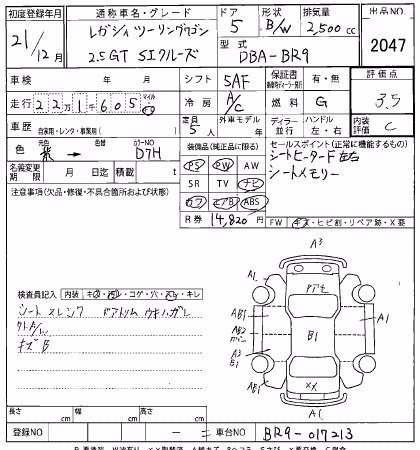 初度登録年月
21/12月
通称車名・グレード
レガシィツーリングワゴン
2.5GT SIクルーズ
ドア
5
形状
B/W
排気量
2,500cc
型式
DBA-BR9
出品NO
2047
車検 年 月
シフト
5AF
保証書
有・無
評価点
3.5
走行
221605
マイル
冷房
A/C
燃料
G
車歴
自家用・レンタ・事業用( )
定員
5人
外車モデル
年
ディーラー
並行
ハンドル
左・右
内装評価
C
色
紫→
色替
カラーNO
D7H
装備品(純正品に限る)
PS PW AW
SR TV ナビ
カワ エアB ABS
セールスポイント(正常に機能するもの)
シートヒーターF左右
シートメモリー
名義変更期限
月 日迄
積載
t
R券
14,820円
注意事項(欠品・修復・不具合箇所および状態)
FW キズ・ヒビ割・リペア跡・X要
検査員記入
内装
キズ・汚レ・コゲ・穴・スレ・キレ
シートスレシワ ドアトリムウキハガレ
キズB
A3
A1
AB1
AB2
A3
B1
AB1
ドアモ
B1
XX
A1
A1
A1
長さ
cm
幅
cm
高さ
cm
登録NO
車台NO
BR9-017213